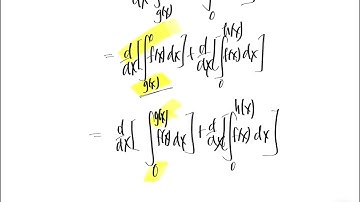 d/dx ∫ g(x) 0
= d/dx [∫_{g(x)}^{0} f(x) dx] + d/dx [∫_{0}^{h(x)} f(x) dx]
= d/dx [∫_{0}^{g(x)} f(x) dx] + d/dx [∫_{0}^{h(x)} f(x) dx]